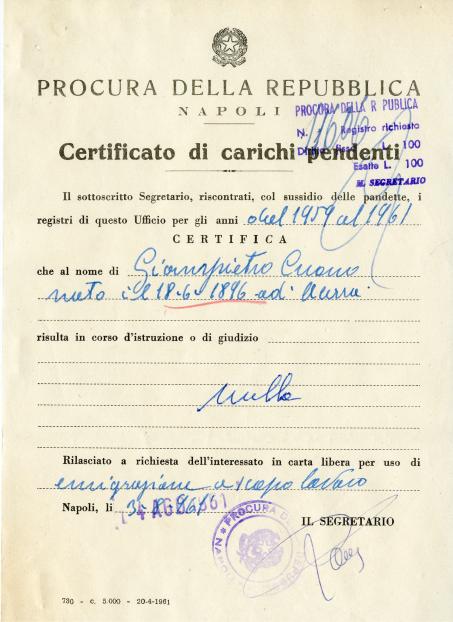 PROCURA DELLA REPUBBLICA
NAPOLI
PROCURA DELLA R PUBBLICA
N. Registro richieste
Diritto fisso L. 100
Esatte L. 100
IL SEGRETARIO
Certificato di carichi pendenti
Il sottoscritto Segretario, riscontrati, col sussidio delle pandette, i
registri di questo Ufficio per gli anni dal 1959 al 1961
CERTIFICA
che al nome di Giampietro Cuomo
nato il 18-6-1896 ad
risulta in corso d'istruzione o di giudizio
nulla
Rilasciato a richiesta dell'interessato in carta libera per uso di
emigrazione a scopo lavoro
Napoli, li
4 AGO 1961
PROCURA D
IL SEGRETARIO
730 - c. 5.000 - 20-4-1961